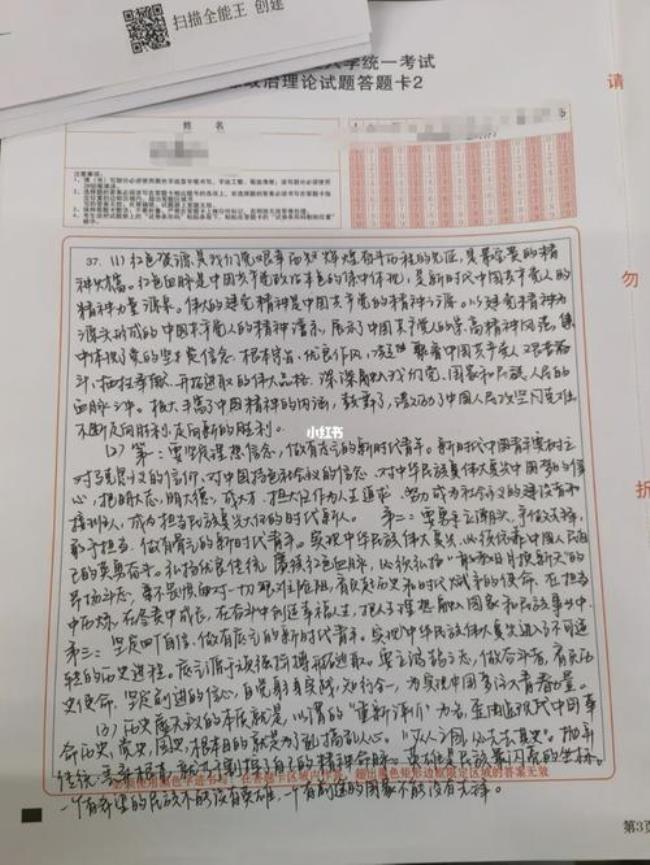 扫描全能王 创建
入学统一考试
政治理论试题答题卡2
请
姓 名
注意事项:
勿
折
37. (1) 红色资源是我们党艰辛而辉煌奋斗历程的见证,是最宝贵的精
神财富。红色血脉是中国共产党政治本色的集中体现,是新时代中国共产党人的
精神力量源泉。伟大的建党精神是中国共产党的精神之源。以建党精神为
源头形成的中国共产党人的精神谱系,展示了中国共产党的崇高精神风范,集
中体现了党的坚定信念、根本宗旨、优良作风,凝聚着中国共产党人艰苦奋
斗、牺牲奉献、开拓进取的伟大品格,深深融入我们党、国家和民族、人民的
血脉之中。极大丰富了中国精神的内涵,鼓舞了、激励了中国人民攻坚闪克难
不断走向胜利,走向新的胜利。
小红书
(2) 第一:要坚定理想信念,做有志气的新时代青年。新时代中国青年要树立
对马克思主义的信仰、对中国特色社会主义的信念、对中华民族伟大复兴中国梦的信
心,把明大志,明大德,成大才,担大任作为人生追求,努力成为社会主义的建设者和
接班人,成为担当民族复兴大任的时代新人。 第二:要勇立潮头、争做先锋,
敢于担当,做有骨气的新时代青年。实现中华民族伟大复兴,必须依靠中国人民自
己的英勇奋斗。弘扬优良传统,赓续红色血脉,必须弘扬“敢教日月换新天”的
昂扬斗志,毫不畏惧面对一切艰难险阻,肩负起历史和时代赋予的使命,在担当
中历炼,在尽责中成长,在奋斗中创造幸福人生,把人生理想融入国家和民族事业中。
第三:坚定四个自信,做有底气的新时代青年。实现中华民族伟大复兴进入了不可逆
转的历史进程。底气源于顽强拼搏开拓进取。要立鸿鹄之志,做奋斗者,肩负历
史使命,坚定前进的信心,自觉躬身实践,知行合一,为实现中国梦注入青春力量。
(3) 历史虚无主义的本质就是,以所谓的“重新评价”为名,歪曲近现代中国革
命历史,党史,国史,根本目的就是为了乱搞乱人心。“灭人之国,必先去其史”。抛弃
传统、丢弃根本,就等于割断了自己的精神命脉。英雄是民族最闪亮的坐标。
一个有希望的民族不能没有英雄,一个有前途的国家不能没有先锋。
第3页